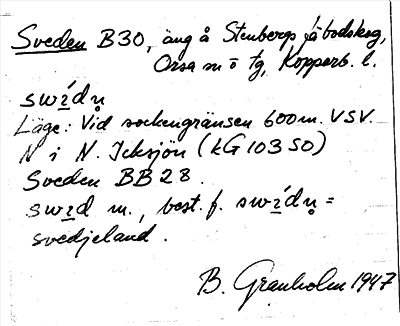 Sveden B30, äng å Stenbergs fäbodskog,
Orsa sn o tg, Kopparb. l.
swi̱dṇ
Läge: Vid sockengränsen 600 m. VSV.
N i N. Icksjön (kG 103 SO)
Sveden BB28
swi̱d m., best. f. swi̱dṇ =
svedjeland.
B. Granholm 1947